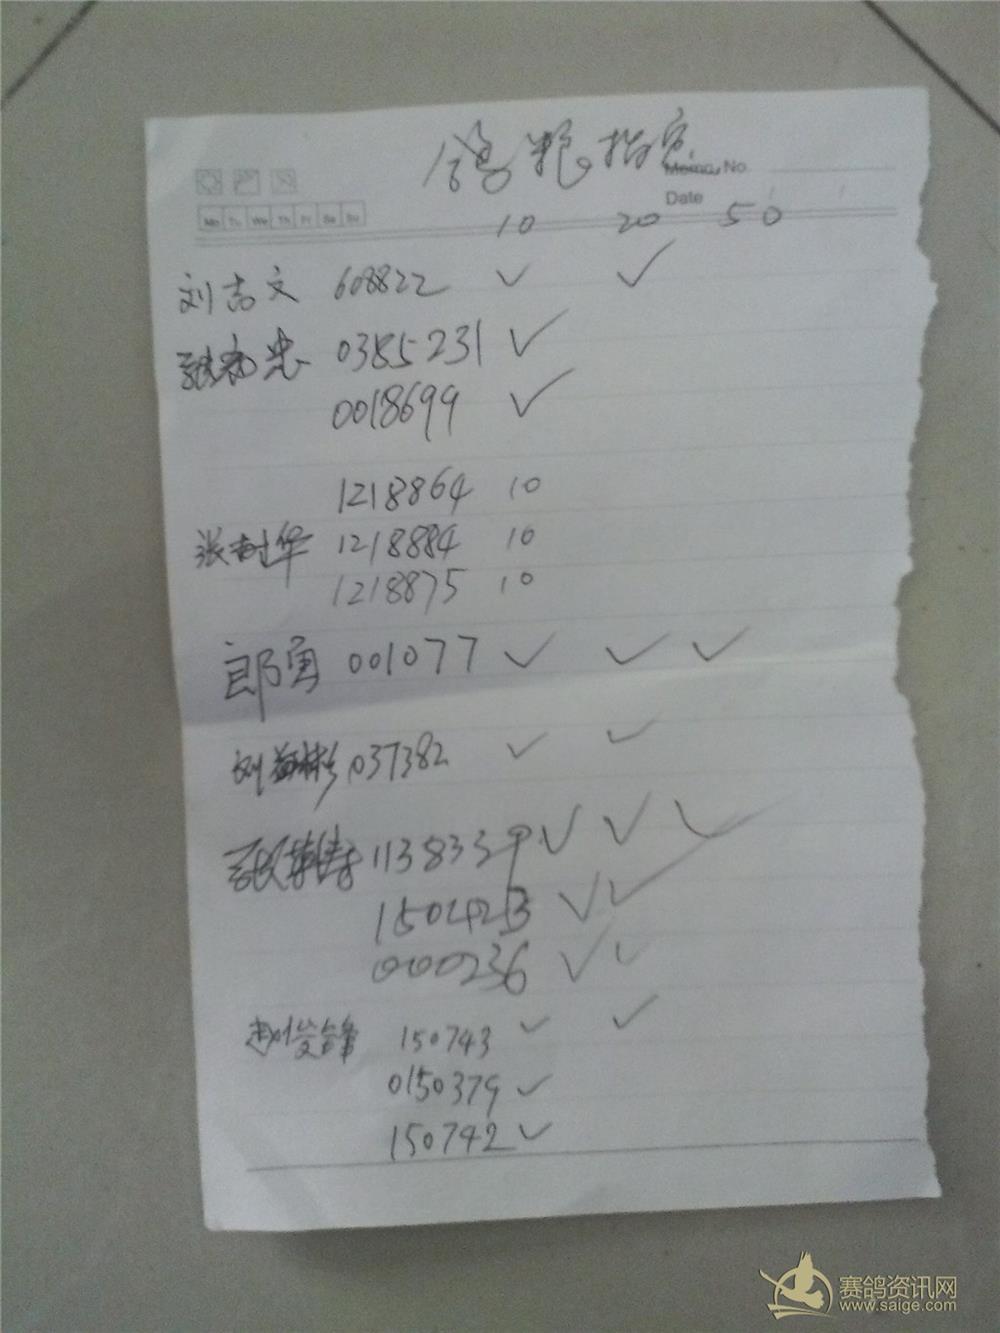 鸽粮指定
Memo. No.
Date
Mo Tu We Th Fr Sa Su
10 20 50
刘志文 608822 ✓ ✓
0385231 ✓
0018699 ✓
1218864 10
张树华 1218884 10
1218875 10
郎勇 001077 ✓ ✓ ✓
刘 037382 ✓ ✓
张 1138339 ✓ ✓ ✓
✓ ✓
000236 ✓ ✓
赵俊锋 150743 ✓ ✓
0150379 ✓
150742 ✓
赛鸽资讯网
www.saige.com